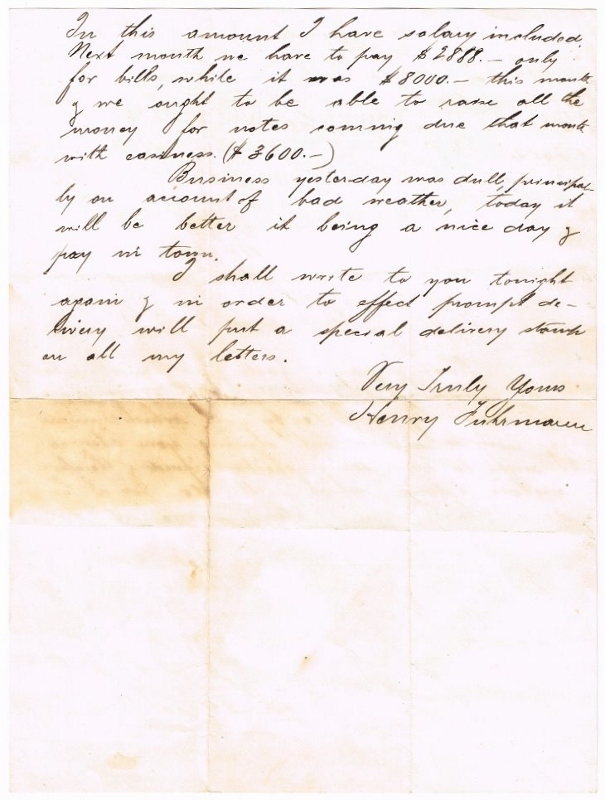 In this amount I have salary included.
Next month we have to pay $2888.- only
for bills, while it was $8000.- this month
& we ought to be able to raise all the
money for notes comming due that month
with easiness. ($3600.-)
Business yesterday was dull, principal-
ly on account of bad weather, today it
will be better it being a nice day &
pay in town.
I shall write to you tonight
again & in order to effect prompt de-
livery will put a special delivery stamp
on all my letters.
Very Truly Yours
Henry Fuhrmann